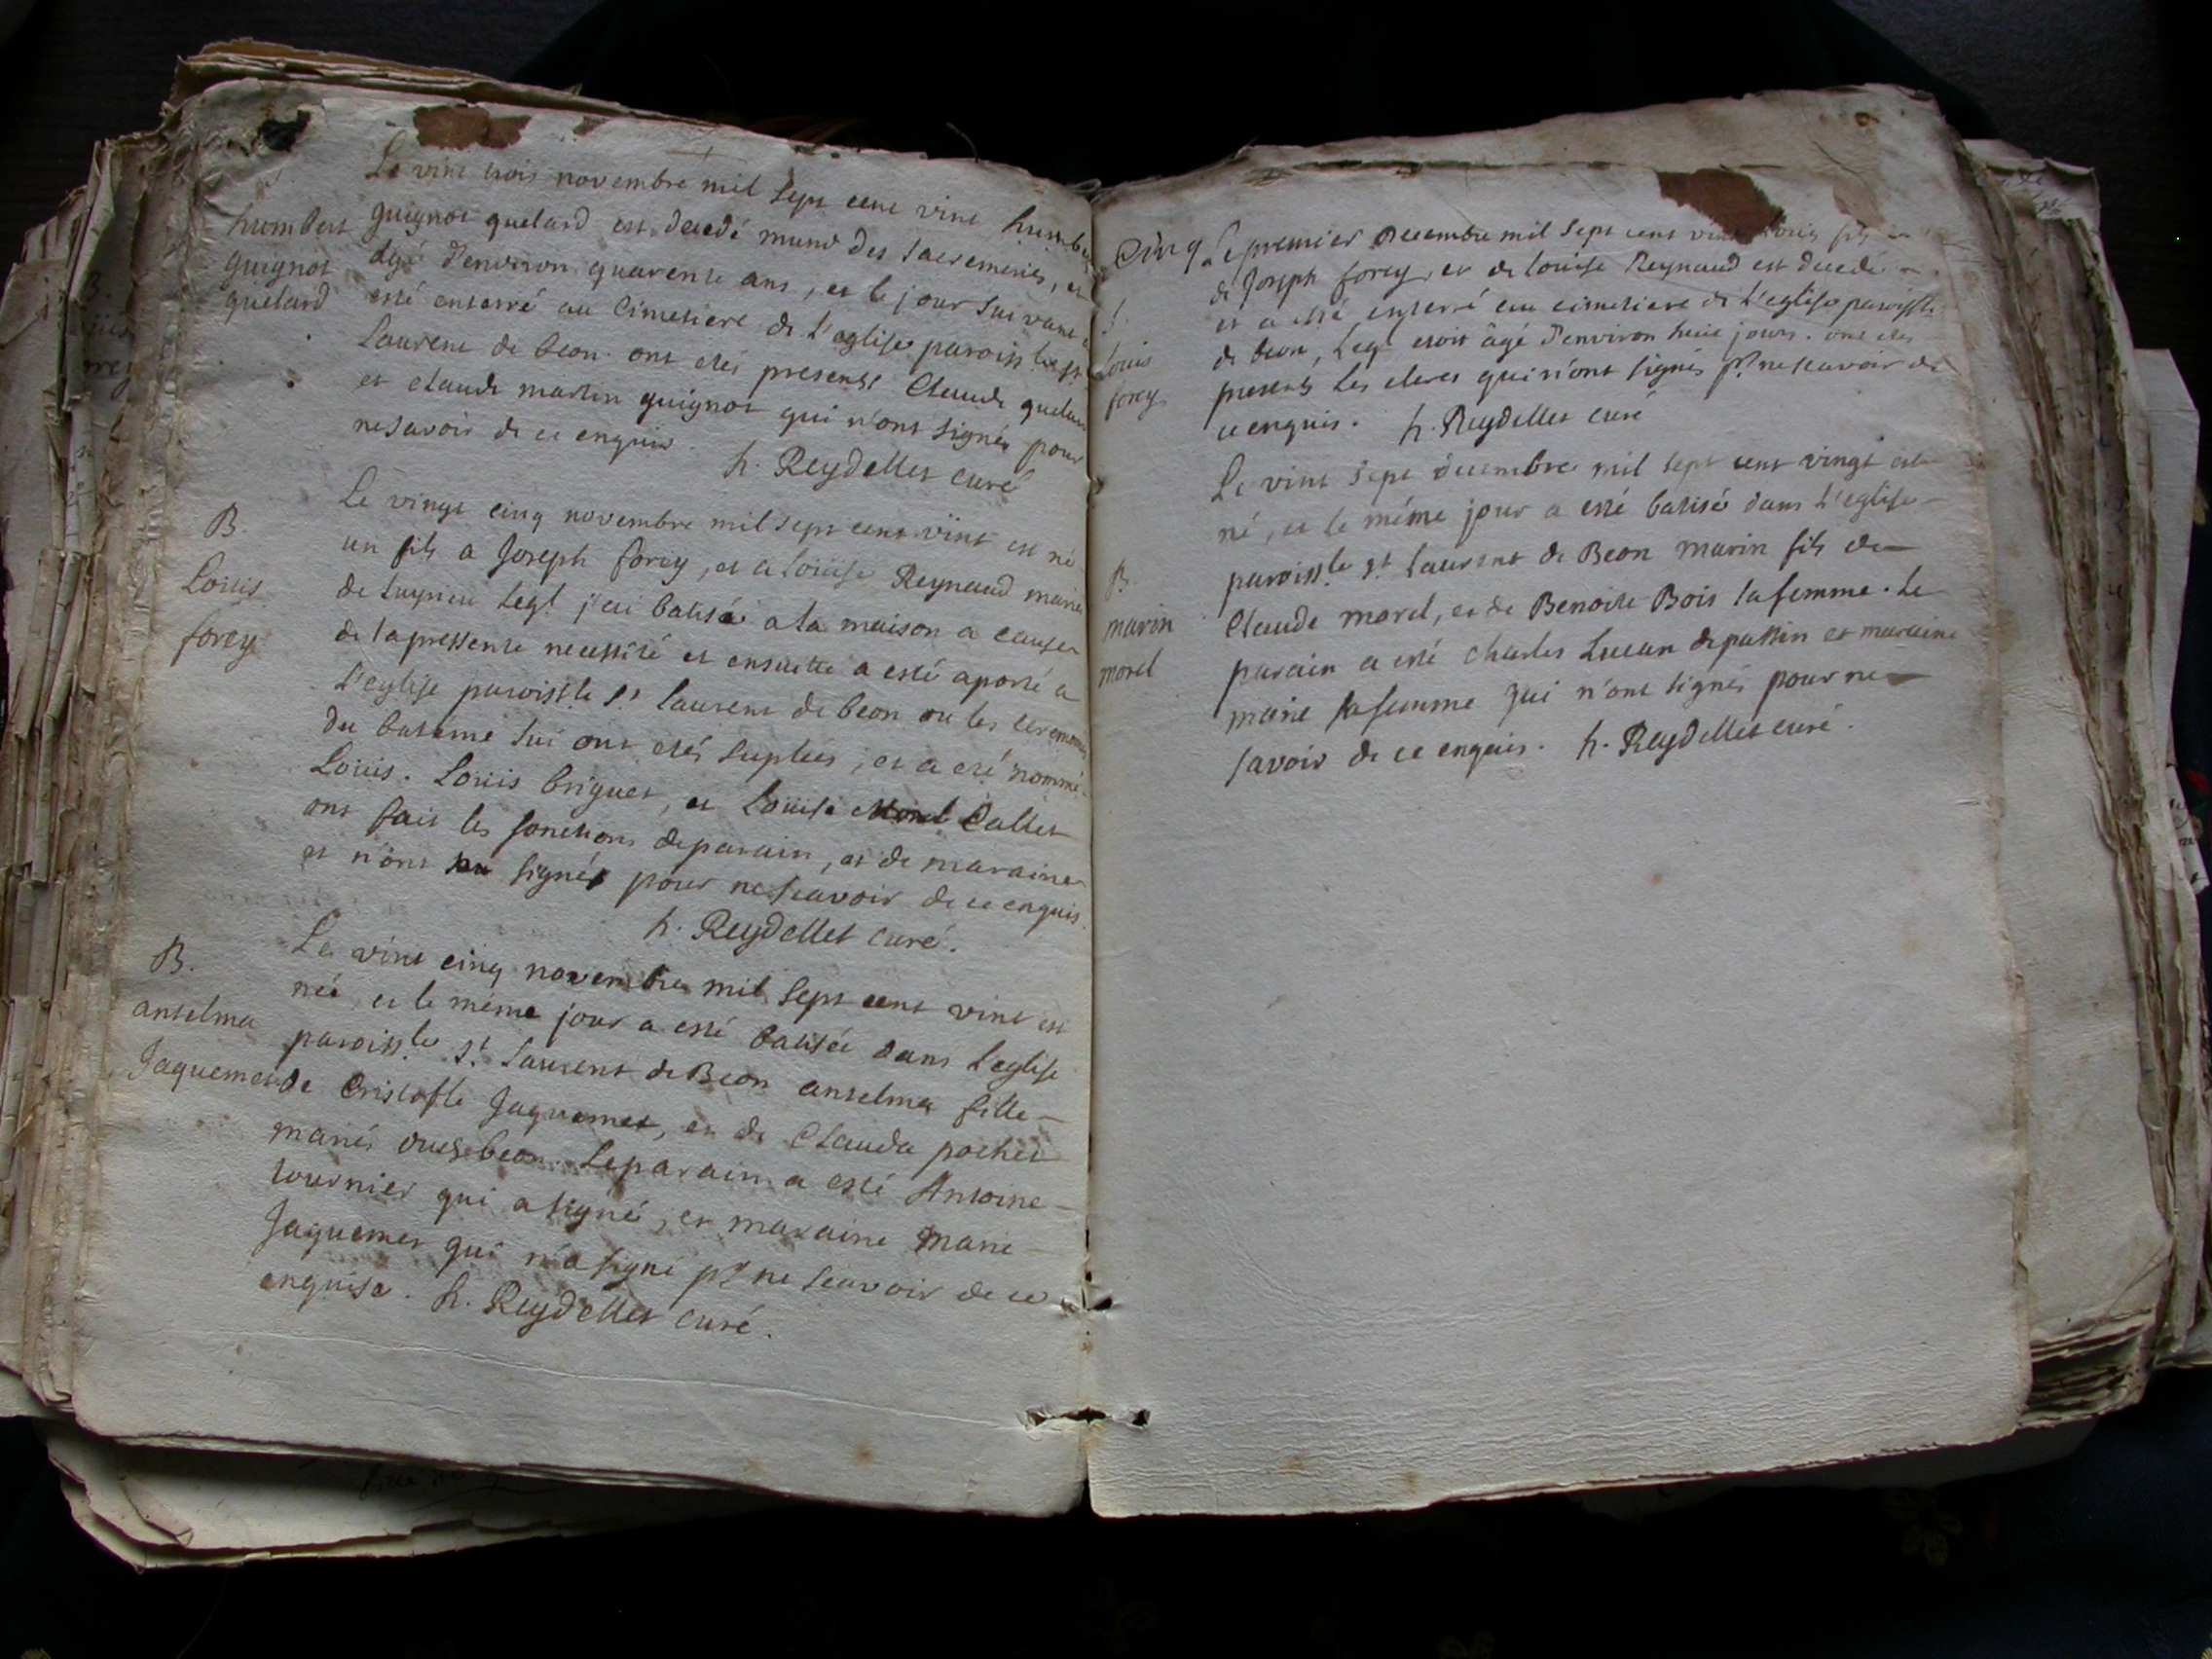 Le vint trois novembre mil sept cent vint humbert
humbert guignot quelard est decedé muny des sacrements, et
guignot agé d'environ quarente ans, et le jour suivant a
quelard esté enterré au cimetiere de l'eglise paroiss.le st
Laurent de beon ont etés presents Claude quelard
et claude martin guignot qui n'ont signés pour
ne savoir de ce enquis. h. Reydellet curé
Le vingt cinq novembre mil sept cent vint est né
B. un fils a Joseph forey, et a Loüise Reynaud mariés
Loüis de Luyrieu leql j'ai batisé a la maison a cause
forey de la pressente necessité et ensuitte a esté aporté a
L'eglise paroiss.le St Laurent de beon ou les ceremonies
du bateme lui ont etés suplées, et a eté nommé
Loüis. Loüis briguet, et Loüise Callet
ont fait les fonctions de parain, et de maraine
et n'ont signés pour ne scavoir de ce enquis.
h. Reydellet curé.
Le vint cinq novembre mil sept cent vint est
B. née, et le méme jour a esté batisée dans l'eglise
antelma paroiss.le St Laurent de Beon antelma fille
Jaquemet de Cristofle Jaquemet, et de Clauda pochet
mariés dud. beon. Le parain a esté Antoine
tournier qui a signé, et maraine marie
Jaquemet qui n'a signé pr ne scavoir de ce
enquise. h. Reydellet curé.
Cinq. Le premier decembre mil sept cent vint Loüis fils
de Joseph forey, et de Louise Reynaud est decedé
S. et a esté enterré au cimetiere de l'eglise paroiss.le
Loüis de beon, leql etoit âgé d'environ huit jours. ont etés
forey presents les clercs qui n'ont signés pr ne scavoir de
ce enquis. h. Reydellet curé
Le vint sept decembre mil sept cent vingt est
né, et le méme jour a esté batisé dans l'eglise
B. paroiss.le St Laurent de Beon marin fils de
marin Claude morel, et de Benoite Bois sa femme. Le
morel parain a esté charles Lucan de passin et maraine
marie sa femme qui n'ont signés pour ne
savoir de ce enquis. h. Reydellet curé.